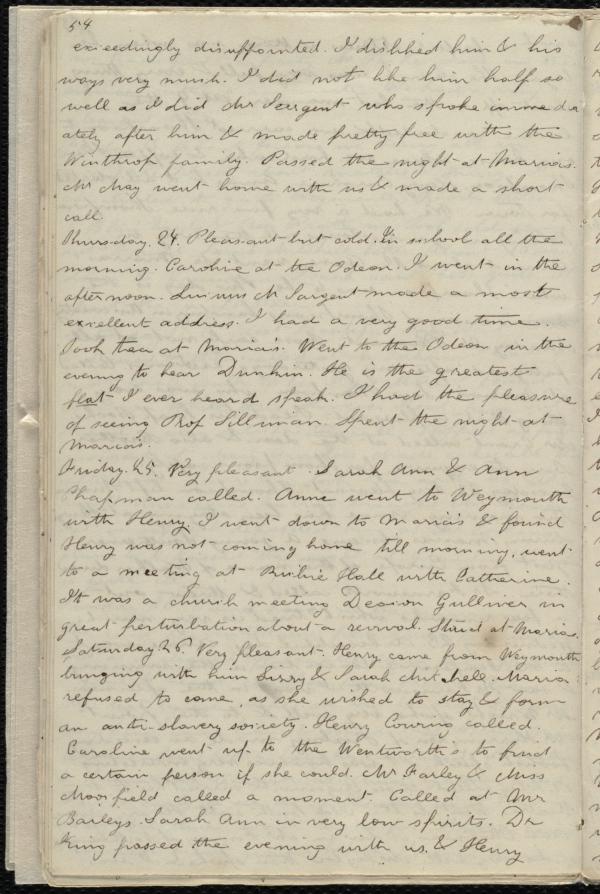 54
exceedingly disappointed. I disliked him & his
ways very much. I did not like him half so
well as I did Mr Sergent who spoke immedi
ately after him & made pretty free with the
Winthrop family. Passed the night at Maria's.
Mr May went home with us & made a short
call
Thursday. 24. Pleasant but cold. In school all the
morning. Caroline at the Odeon. I went in the
afternoon. Lucius M Sargent made a most
excellent address. I had a very good time.
Took tea at Maria's. Went to the Odeon in the
evening to hear Dunkin. He is the greatest
flat I ever heard speak. I had the pleasure
of seeing Prof Silliman. Spent the night at
Maria's.
Friday. 25. Very pleasant. Sarah Ann & Ann
Chapman called. Anne went to Weymouth
with Henry. I went down to Maria's & found
Henry was not coming home till morning, went
to a meeting at Ritchie Hall with Catherine.
It was a church meeting Deacon Gulliver in
great perturbation about a revival. Staid at Marias.
Saturday 26. Very pleasant. Henry came from Weymouth
bringing with him Lizzy & Sarah Mitchell. Maria
refused to come, as she wished to stay & form
an anti-slavery society. Henry Cowing called.
Caroline went up to the Wentworth's to find
a certain person if she could. Mr Farley & Miss
Moorfield called a moment. Called at Mr
Baileys. Sarah Ann in very low spirits. Dr
King passed the evening with us, & Henry